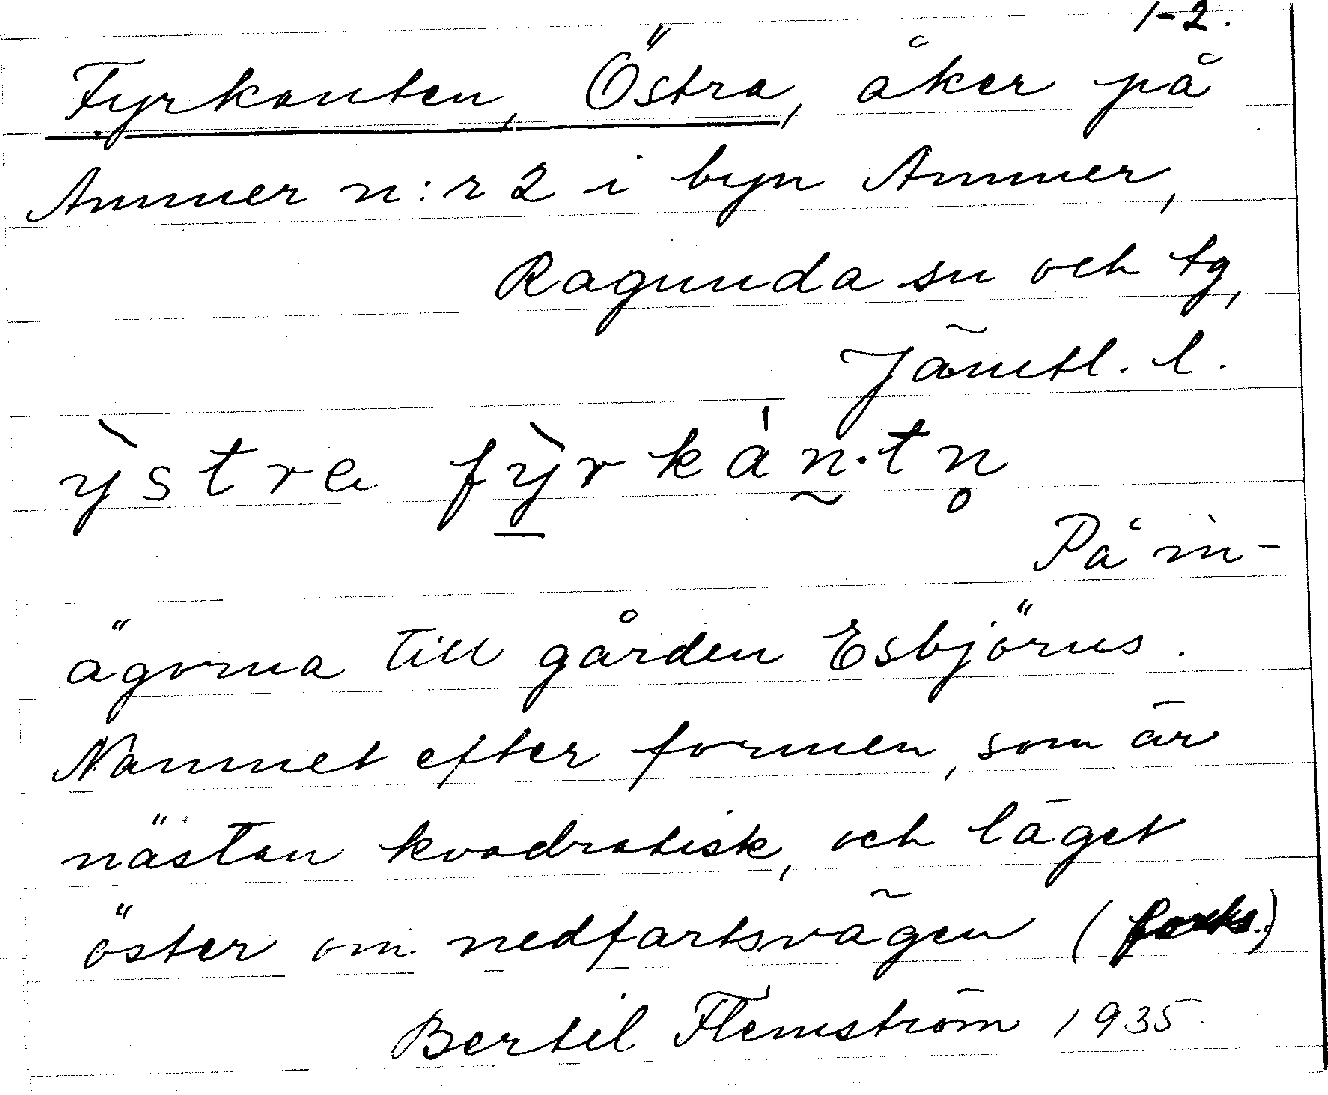 1-2.
Fyrkanten, Östra, åker på
Ammer n:r 2 i byn Ammer,
Ragunda sn och tg,
Jämtl. l.
ỳstra fỳ̱rkán̰·tn̥
På in-
ägorna till gården Esbjörns.
Namnet efter formen, som är
nästan kvadratisk, och läget
öster om nedfartsvägen (forts.)
Bertil Flemström 1935.